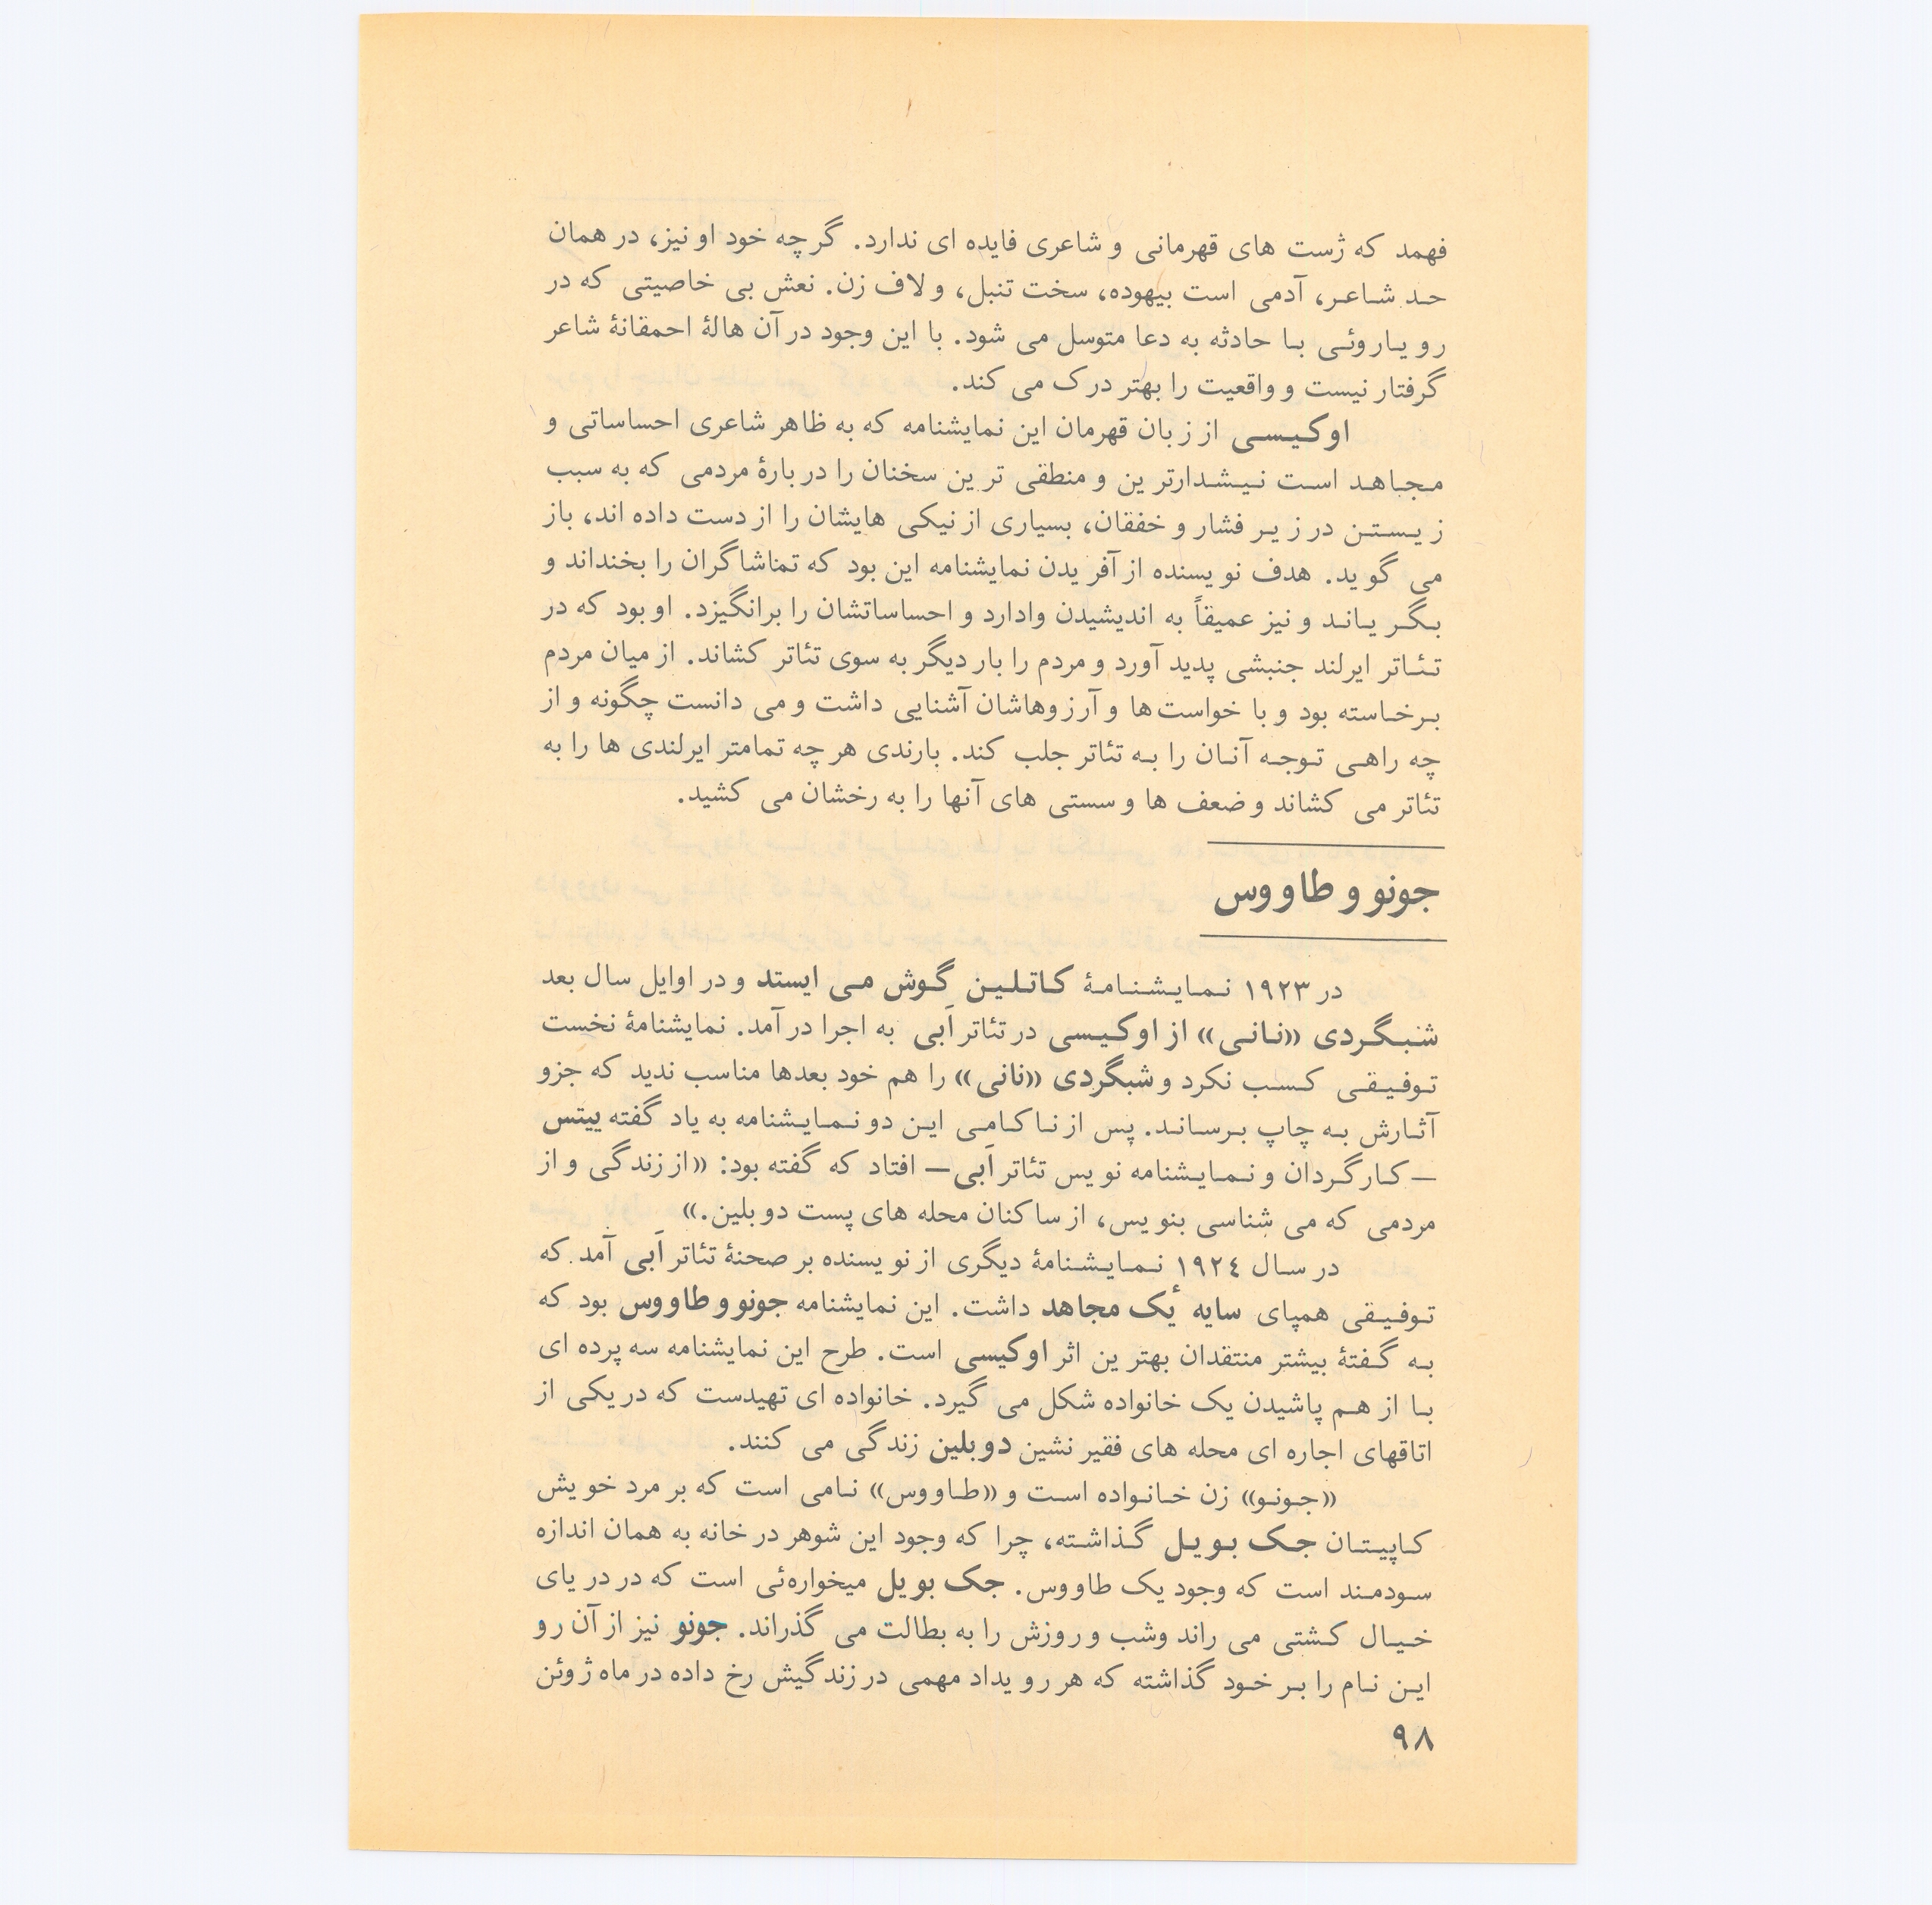 فهمد که ژست های قهرمانی و شاعری فایده ای ندارد. گرچه خود او نیز، در همان
حد شاعر، آدمی است بیهوده، سخت تنبل، و لاف زن. نعش بی خاصیتی که در
رویاروئی با حادثه به دعا متوسل می شود. با این وجود در آن هالهٔ احمقانهٔ شاعر
گرفتار نیست و واقعیت را بهتر درک می کند.
اوکیسی از زبان قهرمان این نمایشنامه که به ظاهر شاعری احساساتی و
مجاهد است نیشدارترین و منطقی ترین سخنان را دربارهٔ مردمی که به سبب
زیستن در زیر فشار و خفقان، بسیاری از نیکی هایشان را از دست داده اند، باز
می گوید. هدف نویسنده از آفریدن نمایشنامه این بود که تماشاگران را بخنداند و
بگریاند و نیز عمیقاً به اندیشیدن وادارد و احساساتشان را برانگیزد. او بود که در
تئاتر ایرلند جنبشی پدید آورد و مردم را بار دیگر به سوی تئاتر کشاند. از میان مردم
برخاسته بود و با خواست‌ها و آرزوهاشان آشنایی داشت و می دانست چگونه و از
چه راهی توجه آنان را به تئاتر جلب کند. بارندی هر چه تمامتر ایرلندی ها را به
تئاتر می کشاند و ضعف ها و سستی های آنها را به رخشان می کشید.
جونو و طاووس
در ۱۹۲۳ نمایشنامهٔ کاتلین گوش می ایستد و در اوایل سال بعد
شبگردی «نانی» از اوکیسی در تئاتر اَبی به اجرا در آمد. نمایشنامهٔ نخست
توفیقی کسب نکرد و شبگردی «نانی» را هم خود بعدها مناسب ندید که جزو
آثارش به چاپ برساند. پس از ناکامی این دو نمایشنامه به یاد گفته ییتس
— کارگردان و نمایشنامه نویس تئاتر اَبی — افتاد که گفته بود: «از زندگی و از
مردمی که می شناسی بنویس، از ساکنان محله های پست دوبلین.»
در سال ۱۹۲٤ نمایشنامهٔ دیگری از نویسنده بر صحنهٔ تئاتر اَبی آمد که
توفیقی همپای سایه یٔک مجاهد داشت. این نمایشنامه جونو و طاووس بود که
به گفتهٔ بیشتر منتقدان بهترین اثر اوکیسی است. طرح این نمایشنامه سه پرده ای
با از هم پاشیدن یک خانواده شکل می گیرد. خانواده ای تهیدست که در یکی از
اتاقهای اجاره ای محله های فقیر نشین دوبلین زندگی می کنند.
«جونو» زن خانواده است و «طاووس» نامی است که بر مرد خویش
کاپیتان جک بویل گذاشته، چرا که وجود این شوهر در خانه به همان اندازه
سودمند است که وجود یک طاووس. جک بویل میخواره‌ئی است که در دریای
خیال کشتی می راند وشب و روزش را به بطالت می گذراند. جونو نیز از آن رو
این نام را بر خود گذاشته که هر رویداد مهمی در زندگیش رخ داده در ماه ژوئن
۹۸